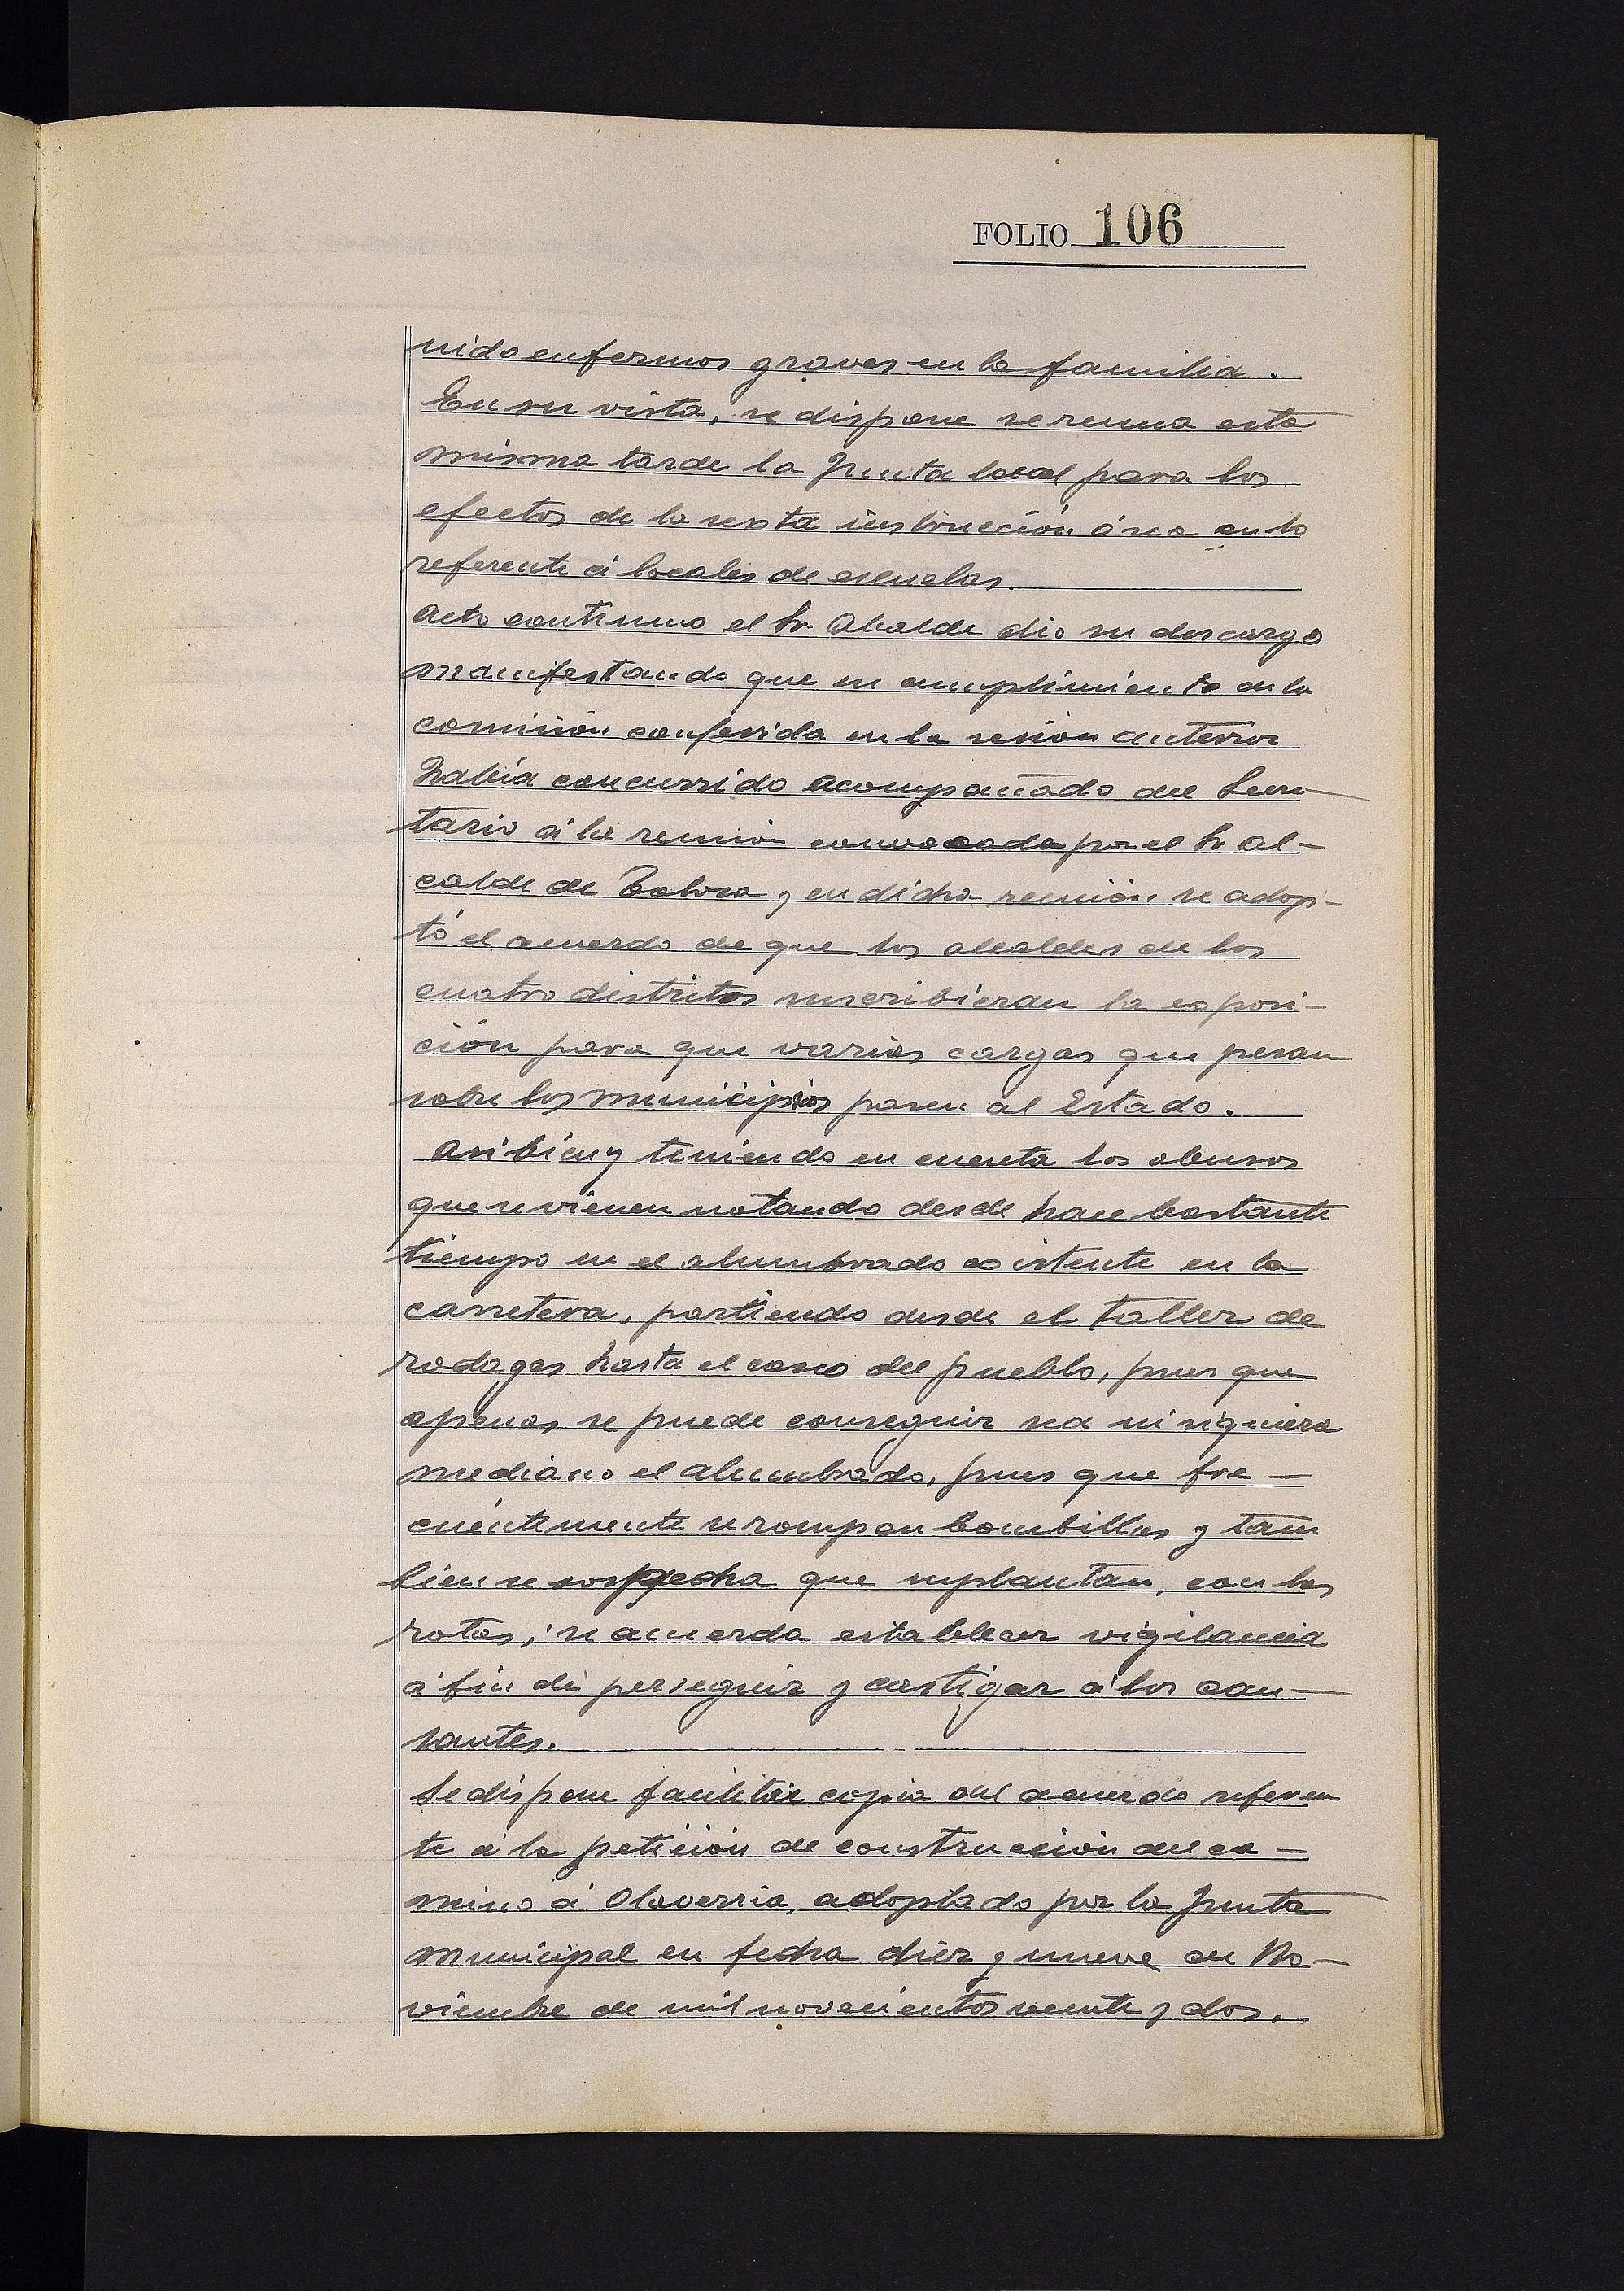 FOLIO 106
nido enfermos graves en la familia.
En su vista, se dispone se reuna esta
misma tarde la Junta local para los
efectos de la sexta instrucción ó sea en lo
referente á locales de escuelas.
Acto continuo el Sr. Alcalde dio su descargo
manifestando que en cumplimiento de la
comisión conferida en la sesión anterior
había concurrido acompañado del Secre-
tario á la reunión convocada por el Sr. Al-
calde de Tolosa y en dicha reunión se adop-
tó el acuerdo de que los alcaldes de los
cuatro distritos suscribieran la exposi-
ción para que varias cargas que pesan
sobre los municipios pasen al Estado.
Asi bien y teniendo en cuenta los abusos
que se vienen notando desde hace bastante
tiempo en el alumbrado existente en la
carretera, partiendo desde el taller de
rodages hasta el casco del pueblo, pues que
apenas se puede conseguir sea ni siquiera
mediano el alumbrado, pues que fre-
cuéntemente se rompen bombillas y tam
bien se sospecha que suplantan, con las
rotas; se acuerda establecer vigilancia
á fin de perseguir y castigar á los cau-
santes.
Se dispone facilitar copia del acuerdo referen
te á la petición de construcción del ca-
mino á Olaverria, adoptado por la Junta
municipal en fecha diez y nueve de No-
viembre de mil novecientos veinte y dos.